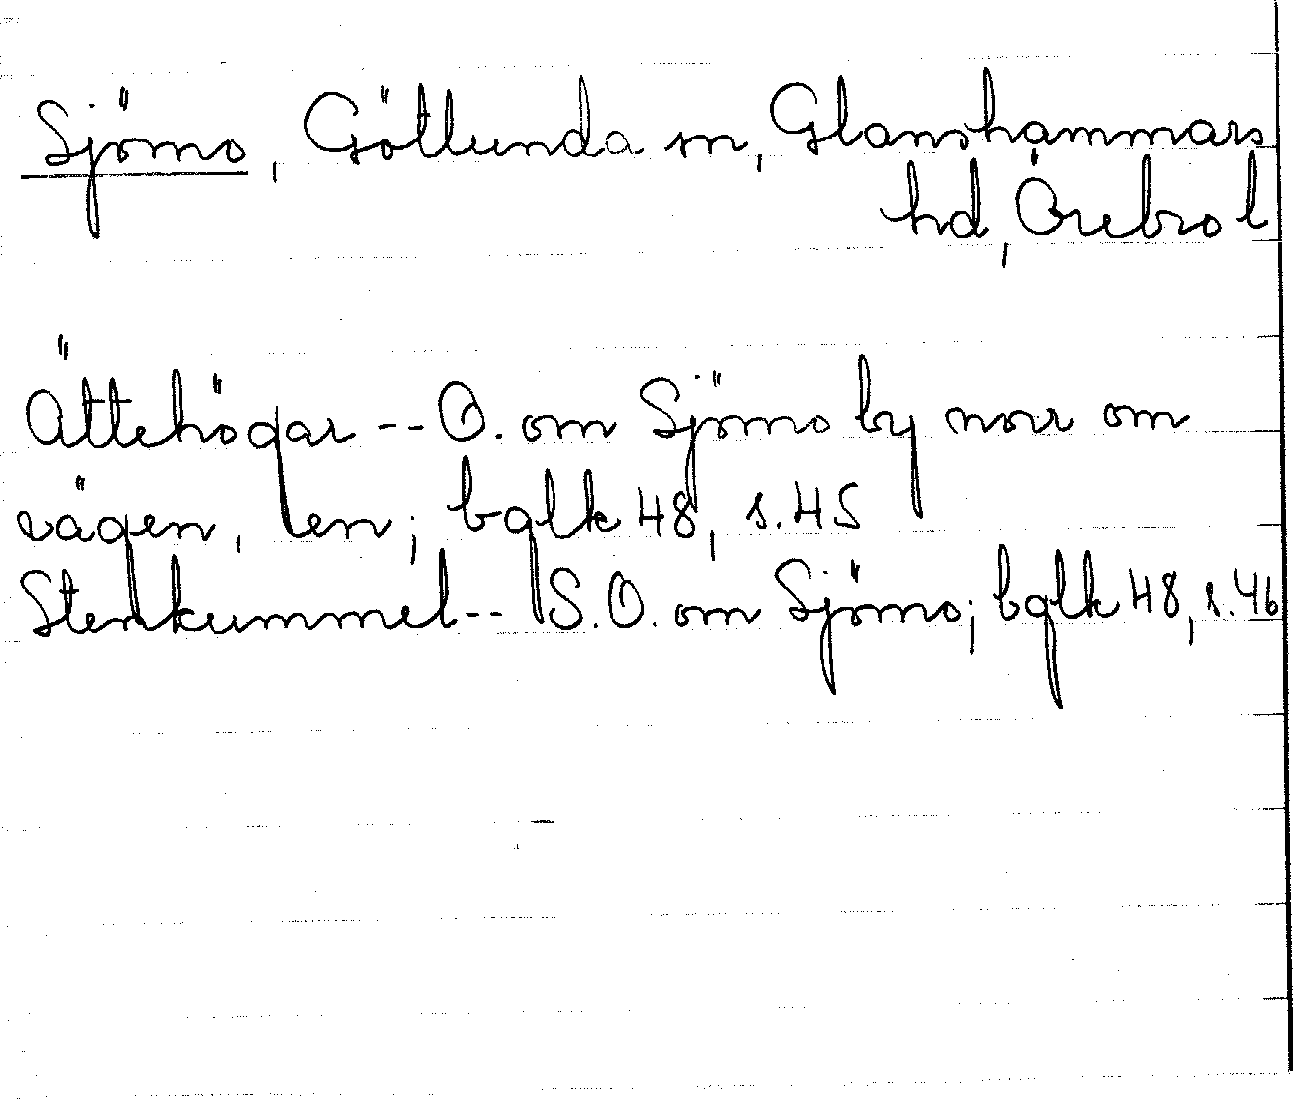 Sjömo, Götlunda sn, Glanshammars
hd, Örebro l
Ättehögar -- O. om Sjömo by norr om
vägen, en; bglk 48, s. 45
Stenkummel -- S.O. om Sjömo; bglk 48, s. 46